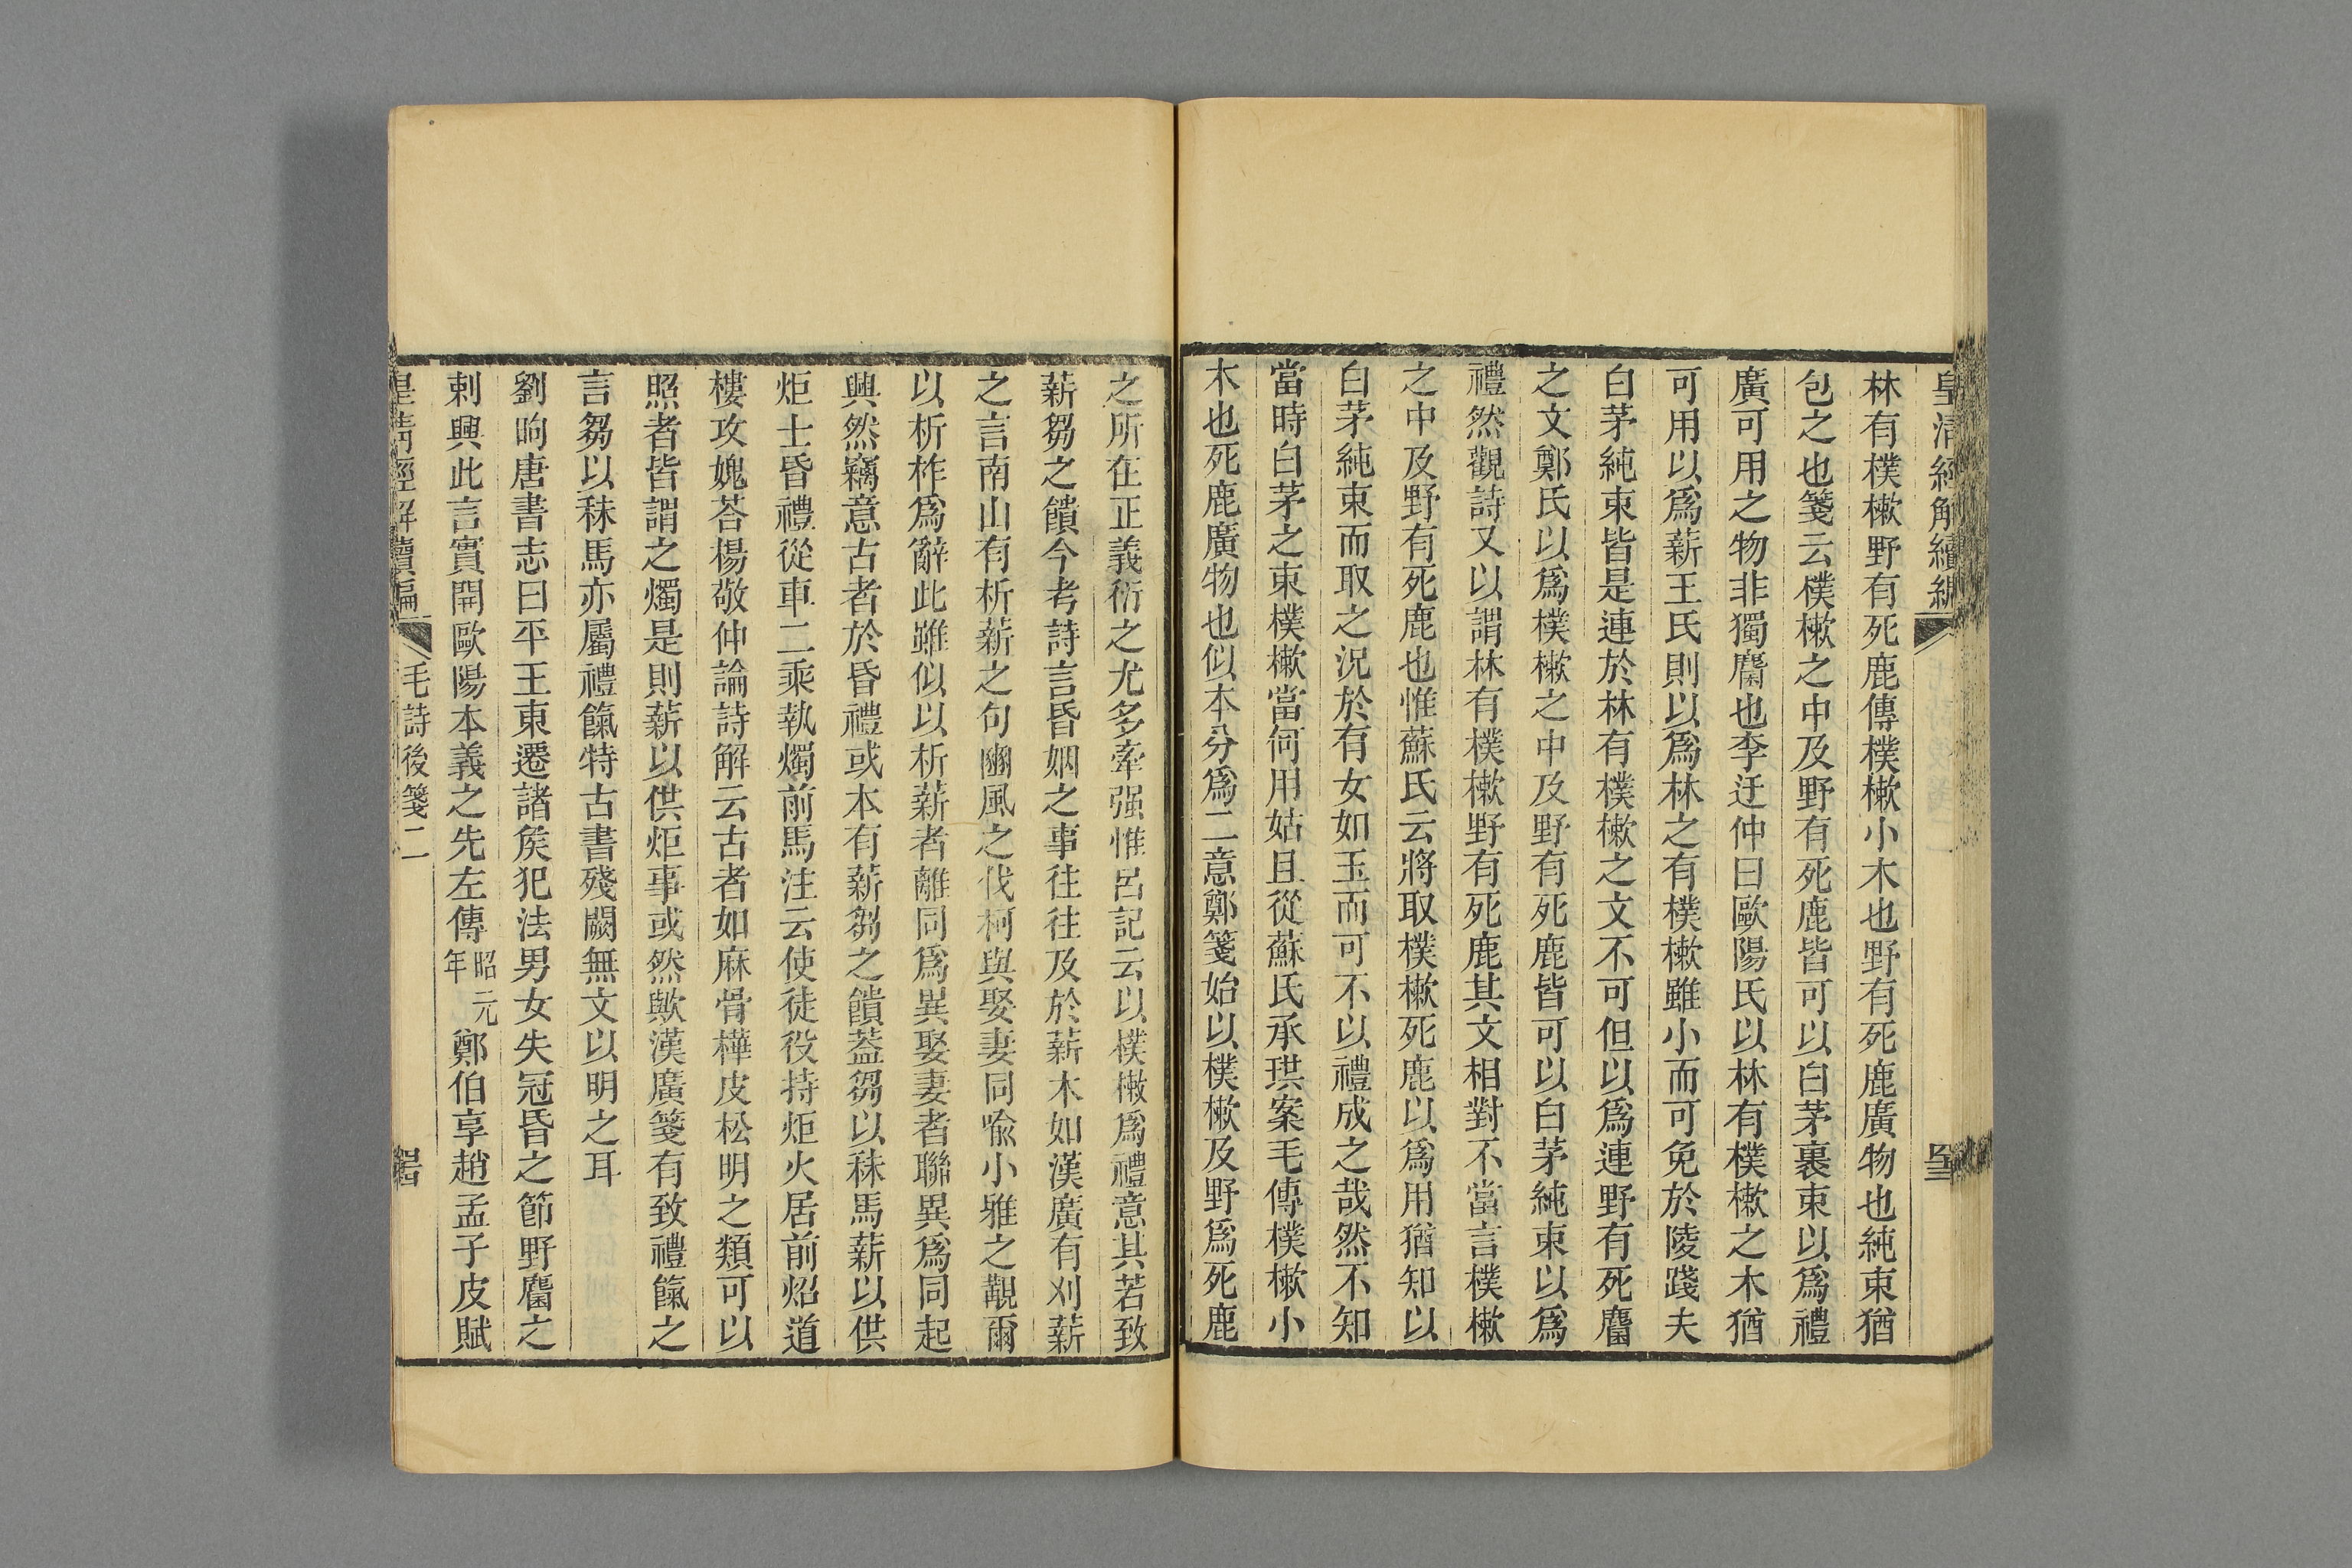 皇清經解續編
林有樸樕野有死鹿傳樸樕小木也野有死鹿廣物也純束猶
包之也箋云樸樕之中及野有死鹿皆可以白茅裹束以爲禮
廣可用之物非獨麕也李迂仲曰歐陽氏以林有樸樕之木猶
可用以爲薪王氏則以爲林之有樸樕雖小而可免於陵踐夫
白茅純束皆是連於林有樸樕之文不可但以爲連野有死麕
之文鄭氏以爲樸樕之中及野有死鹿皆可以白茅純束以爲
禮然觀詩又以謂林有樸樕野有死鹿其文相對不當言樸樕
之中及野有死鹿也惟蘇氏云將取樸樕死鹿以爲用猶知以
白茅純束而取之況於有女如玉而可不以禮成之哉然不知
當時白茅之束樸樕當何用姑且從蘇氏承珙案毛傳樸樕小
木也死鹿廣物也似本分爲二意鄭箋始以樸樕及野爲死鹿
之所在正義衍之尤多牽强惟呂記云以樸樕爲禮意其若致
薪芻之饋今考詩言昏姻之事往往及於薪木如漢廣有刈薪
之言南山有析薪之句豳風之伐柯與娶妻同喩小雅之觏爾
以析柞爲辭此雖似以析薪者離同爲異娶妻者聯異爲同起
興然竊意古者於昏禮或本有薪芻之饋蓋芻以秣馬薪以供
炬士昏禮從車二乘執燭前馬注云使徒役持炬火居前炤道
樓攻媿荅楊敬仲論詩解云古者如麻骨樺皮松明之類可以
照者皆謂之燭是則薪以供炬事或然歟漢廣箋有致禮餼之
言芻以秣馬亦屬禮餼特古書殘闕無文以明之耳
劉昫唐書志曰平王東遷諸矦犯法男女失冠昏之節野麕之
刺興此言實開歐陽本義之先左傳昭元年鄭伯享趙孟子皮賦
皇清經解續編
毛詩後箋二